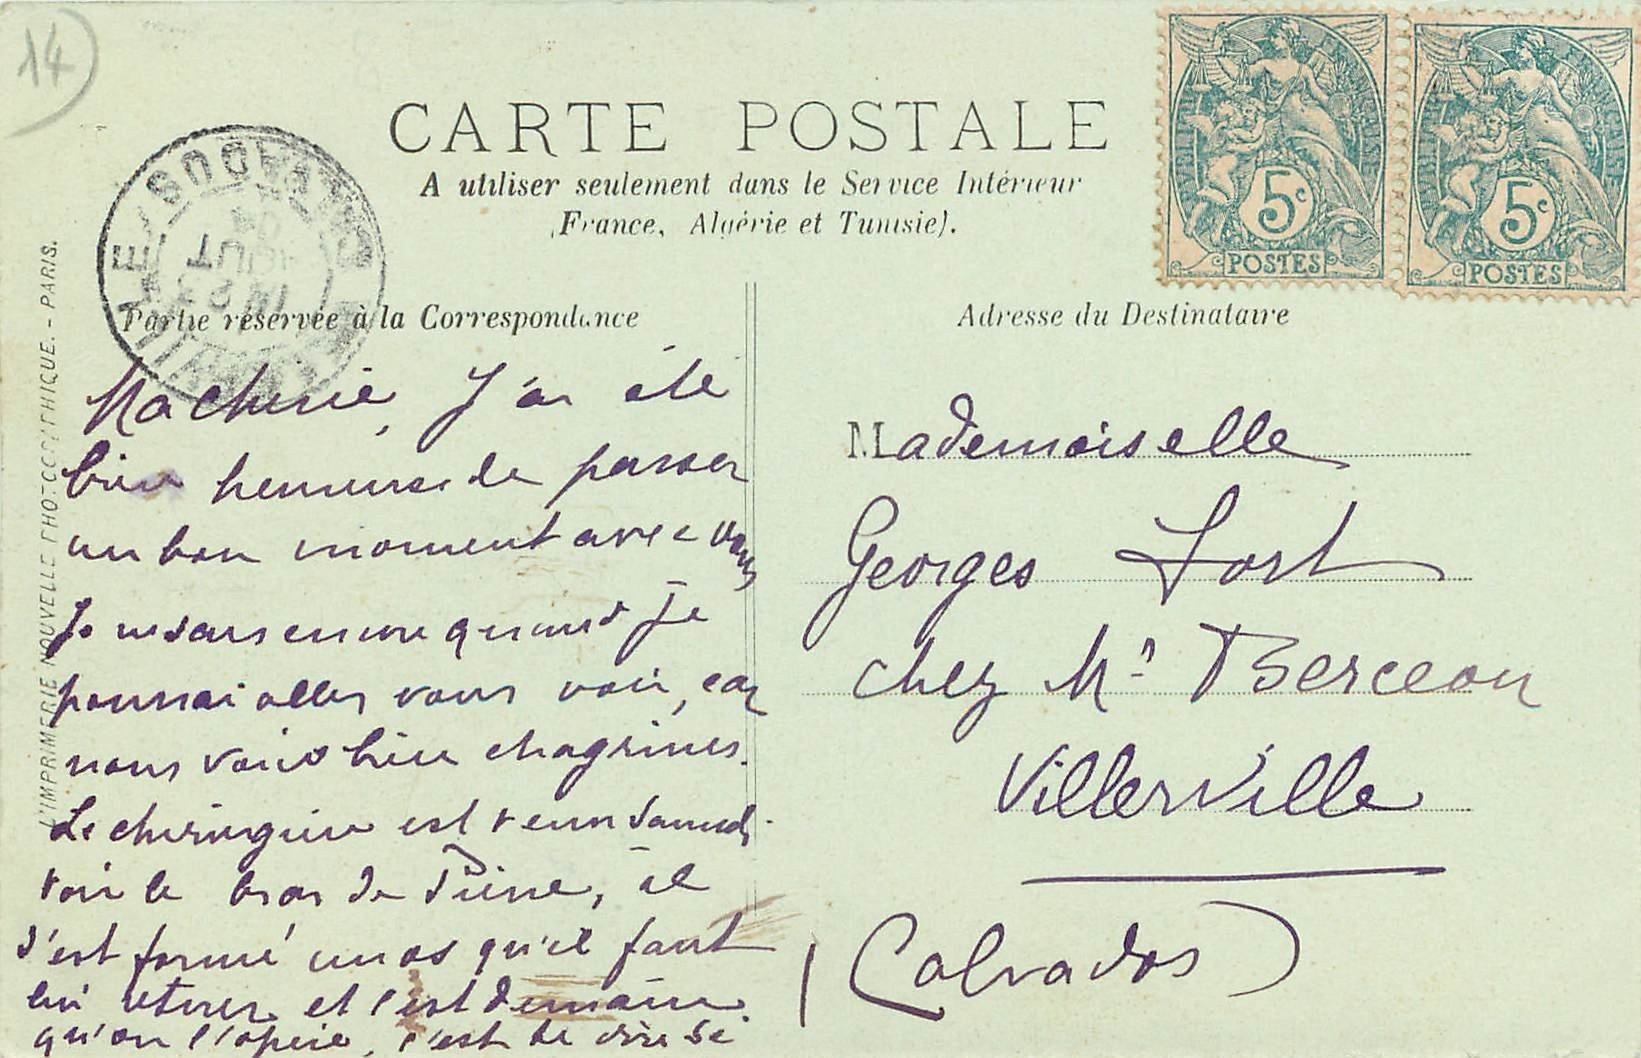 14
CARTE POSTALE
A utiliser seulement dans le Service Intérieur
(France, Algérie et Tunisie).
5c
POSTES
5c
POSTES
CALVADOS
AOUT
Partie réservée à la Correspondance
Adresse du Destinataire
L'IMPRIMERIE NOUVELLE PHOTOGRAPHIQUE. - PARIS.
Ma cherie, J'ai été
bien heureuse de passer
un bon moment avec vous
Je ne sais encore quand je
pourrai aller vous voir, car
nous voici bien chagrines.
Le chirurgien est venu samedi
voir le bras de Pierre, il
s'est formé un os qu'il faut
lui retirer et c'est demain
qu'on l'opère, c'est te dire si
Mademoiselle
Georges Fort
chez Mr Berceou
Villerville
(Calvados)